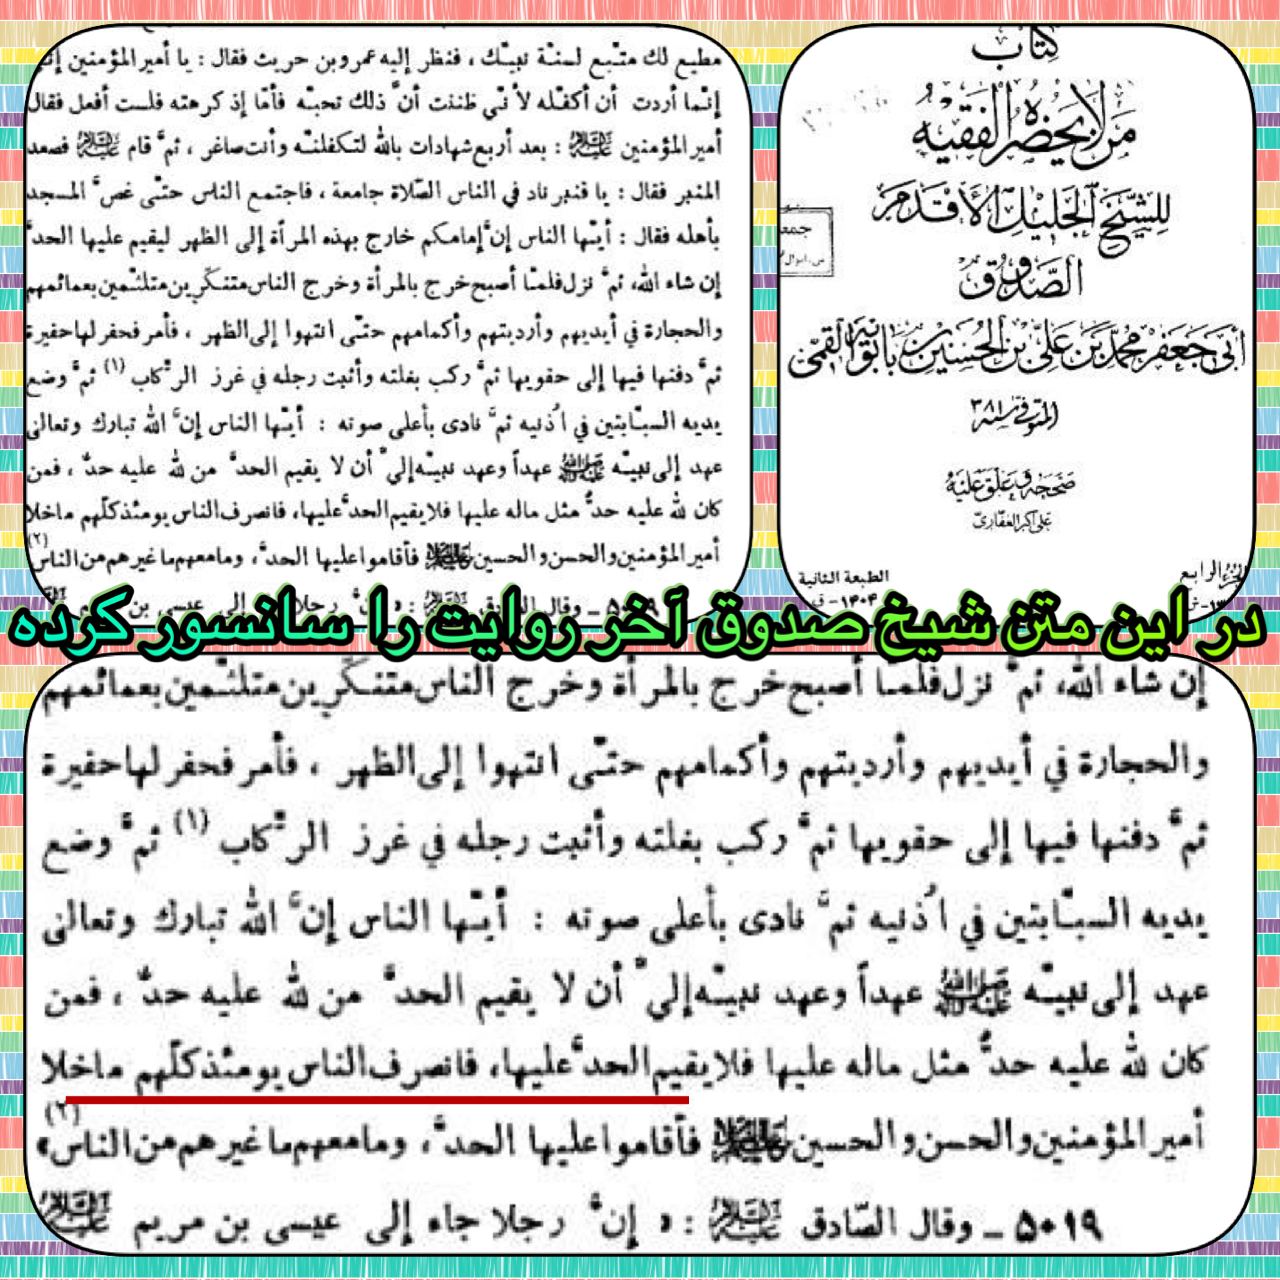 مطيع لك متّبع لسنّة نبيّك ، فنظر إليه عمرو بن حريث فقال : يا أمير المؤمنين إنّي
إنّما أردت أن أكفّله لأنّي ظننت أنّ ذلك تحبّه فأمّا إذ كرهته فلست أفعل فقال
أمير المؤمنين عليه السلام : بعد أربع شهادات بالله لتكفلنّه وأنت صاغر ، ثمّ قام عليه السلام فصعد
المنبر فقال : يا قنبر ناد في الناس الصّلاة جامعة ، فاجتمع الناس حتّى غصّ المسجد
بأهله فقال : أيّها الناس إنّ إمامكم خارج بهذه المرأة إلى الظهر ليقيم عليها الحدّ
إن شاء الله، ثمّ نزل فلمّا أصبح خرج بالمرأة وخرج الناس متنكّرين متلثّمين بعمائمهم
والحجارة في أيديهم وأرديتهم وأكمامهم حتّى انتهوا إلى الظهر ، فأمر فحفر لها حفيرة
ثمّ دفنها فيها إلى حقويها ثمّ ركب بغلته وأثبت رجله في غرز الرّكاب (١) ثمّ وضع
يديه السبّابتين في اُذنيه ثمّ نادى بأعلى صوته : أيّها الناس إنّ الله تبارك وتعالى
عهد إلى نبيّه صلى الله عليه وآله عهداً وعهد نبيّه إليّ أن لا يقيم الحدّ من لله عليه حدّ ، فمن
كان لله عليه حدّ مثل ماله عليها فلا يقيم الحدّ عليها، فانصرف الناس يومئذ كلّهم ماخلا
أمير المؤمنين والحسن والحسين عليهم السلام فأقاموا عليها الحدّ، وما معهم ما غيرهم من الناس (٢)
٥٠١٩ ـ وقال الصّادق عليه السلام : « إنّ رجلا جاء إلى عيسى بن مريم عليه السلام
كتاب
من لا يحضره الفقيه
للشيخ الجليل الأقدم
الصدوق
أبي جعفر محمد بن علي بن الحسين بن بابويه القمي
المتوفى سنة ٣٨١
صححه وعلق عليه
علي أكبر الغفاري
الجزء الرابع
الطبعة الثانية
١۴٠۴ - ق
در این متن شیخ صدوق آخر روایت را سانسور کرده
إن شاء الله، ثمّ نزل فلمّا أصبح خرج بالمرأة وخرج الناس متنكّرين متلثّمين بعمائمهم
والحجارة في أيديهم وأرديتهم وأكمامهم حتّى انتهوا إلى الظهر ، فأمر فحفر لها حفيرة
ثمّ دفنها فيها إلى حقويها ثمّ ركب بغلته وأثبت رجله في غرز الرّكاب (١) ثمّ وضع
يديه السبّابتين في اُذنيه ثمّ نادى بأعلى صوته : أيّها الناس إنّ الله تبارك وتعالى
عهد إلى نبيّه صلى الله عليه وآله عهداً وعهد نبيّه إليّ أن لا يقيم الحدّ من لله عليه حدّ ، فمن
كان لله عليه حدّ مثل ماله عليها فلا يقيم الحدّ عليها، فانصرف الناس يومئذ كلّهم ماخلا
أمير المؤمنين والحسن والحسين عليهم السلام فأقاموا عليها الحدّ، وما معهم ما غيرهم من الناس (٢)»
٥٠١٩ ـ وقال الصّادق عليه السلام : « إنّ رجلا جاء إلى عيسى بن مريم عليه السلام